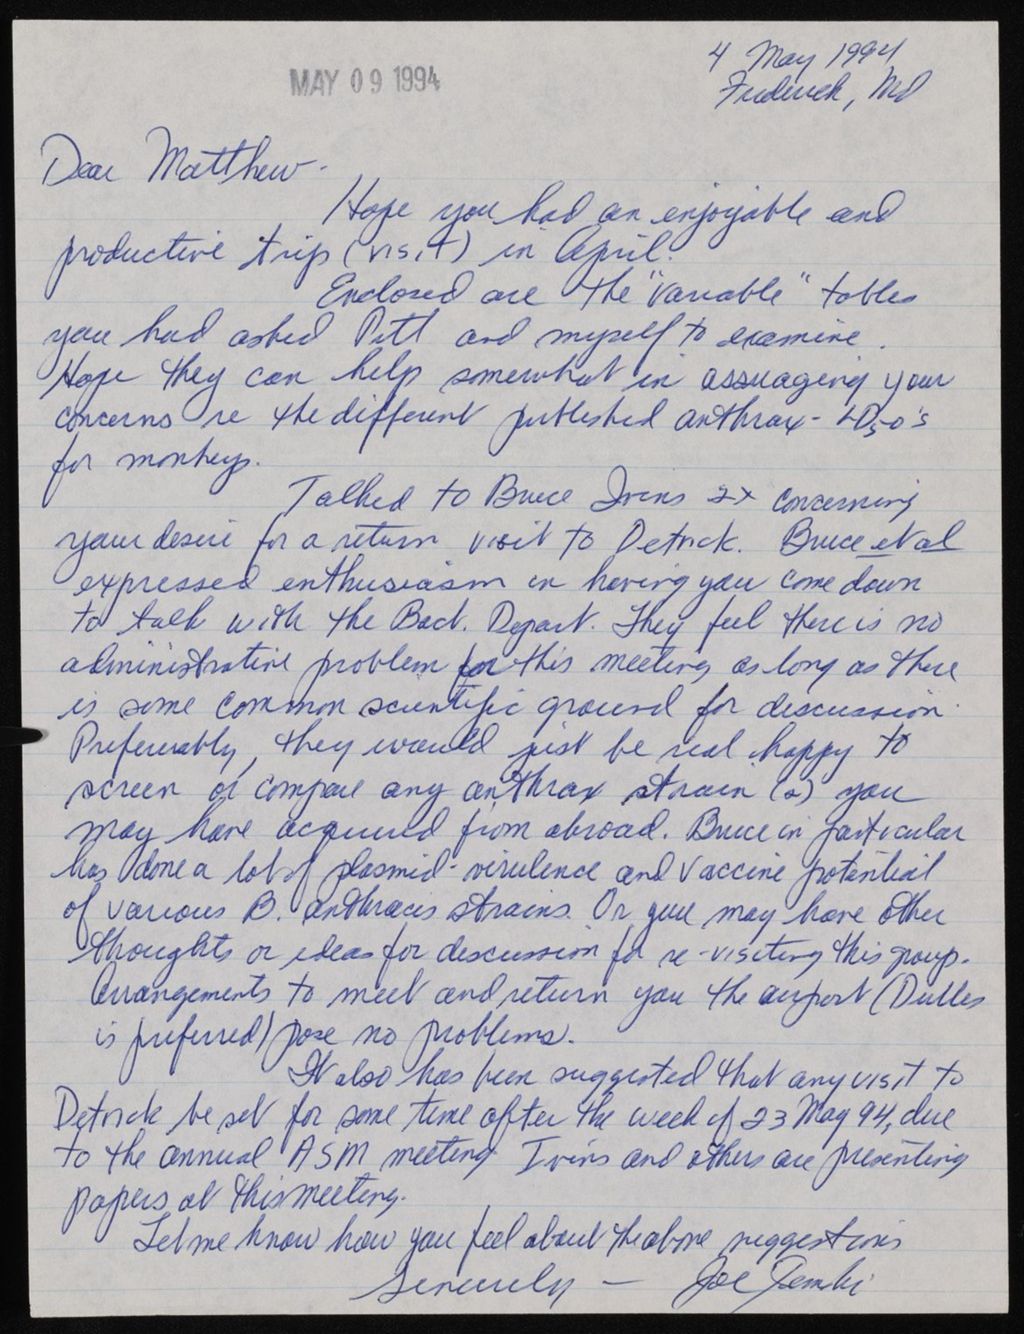 4 May 1994
MAY 09 1994
Frederick, Md
Dear Matthew -
Hope you had an enjoyable and
productive trip (visit) in April.
Enclosed are the "variable" tables
you had asked Pitt and myself to examine.
Hope they can help somewhat in assuaging your
concerns re the different published anthrax - LD50's
for monkeys.
Talked to Bruce Ivins 2x concerning
your desire for a return visit to Detrick. Bruce et al
expressed enthusiasm in having you come down
to talk with the Bact. Depart. They feel there is no
administrative problem for this meeting as long as there
is some common scientific ground for discussion.
Preferrably, they would just be real happy to
screen or compare any anthrax strain (s) you
may have acquired from abroad. Bruce in particular
has done a lot of plasmid - virulence and vaccine potential
of various B. anthracis strains. Or you may have other
thoughts or ideas for discussion for re-visiting this group.
Arrangements to meet and return you the airport (Dulles
is preferred) pose no problems.
It also has been suggested that any visit to
Detrick be set for some time after the week of 23 May 94, due
to the annual ASM meeting. Ivins and others are presenting
papers at this meeting.
Let me know how you feel about the above suggestions
Sincerely — Joe